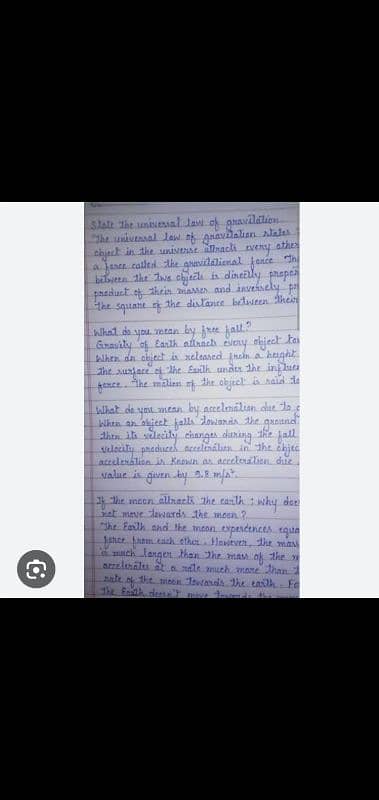 State the universal law of gravitation.
"The universal law of gravitation states
object in the universe attracts every other
a force called the gravitational force. Th
between the two objects is directly propor
product of their masses and inversely pr
the square of the distance between their
What do you mean by free fall?
Gravity of Earth attracts every object tow
When an object is released from a height
the surface of the Earth under the influen
force. The motion of the object is said to
What do you mean by acceleration due to g
When an object falls towards the ground
then its velocity changes during the fall
velocity produces acceleration in the objec
acceleration is Known as acceleration due
value is given by 9.8 m/s².
If the moon attracts the earth, why does
not move towards the moon?
"The Earth and the moon experiences equa
force from each other. However, the mass
is much larger than the mass of the m
accelerates at a rate much more than t
rate of the moon towards the earth. Fo
The Earth doesn't move towards the moon